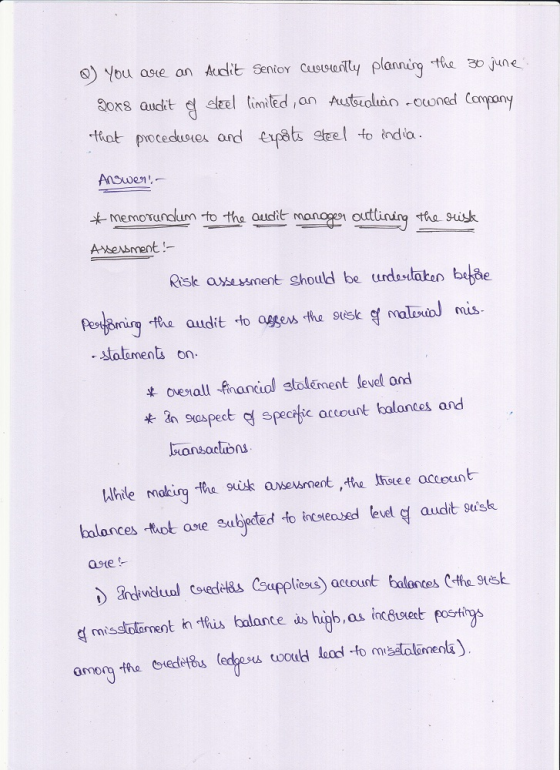 Q) You are an Audit Senior currently planning the 30 june
20x8 audit of steel limited, an Australian-owned Company
that procedures and Exports steel to india.
Answer:-
* memorundum to the audit manager outlining the risk
Assessment:-
Risk assessment should be undertaken before
Performing the audit to assess the risk of material mis-
-statements on.
* overall financial statement level and
* In respect of specific account balances and
transactions.
While making the risk assessment, the three account
balances that are subjected to increased level of audit risk
are:-
1) Individual creditors (suppliers) account balances (the risk
of misstatement in this balance is high, as incorrect postings
among the creditors ledgers would lead to misstatements).